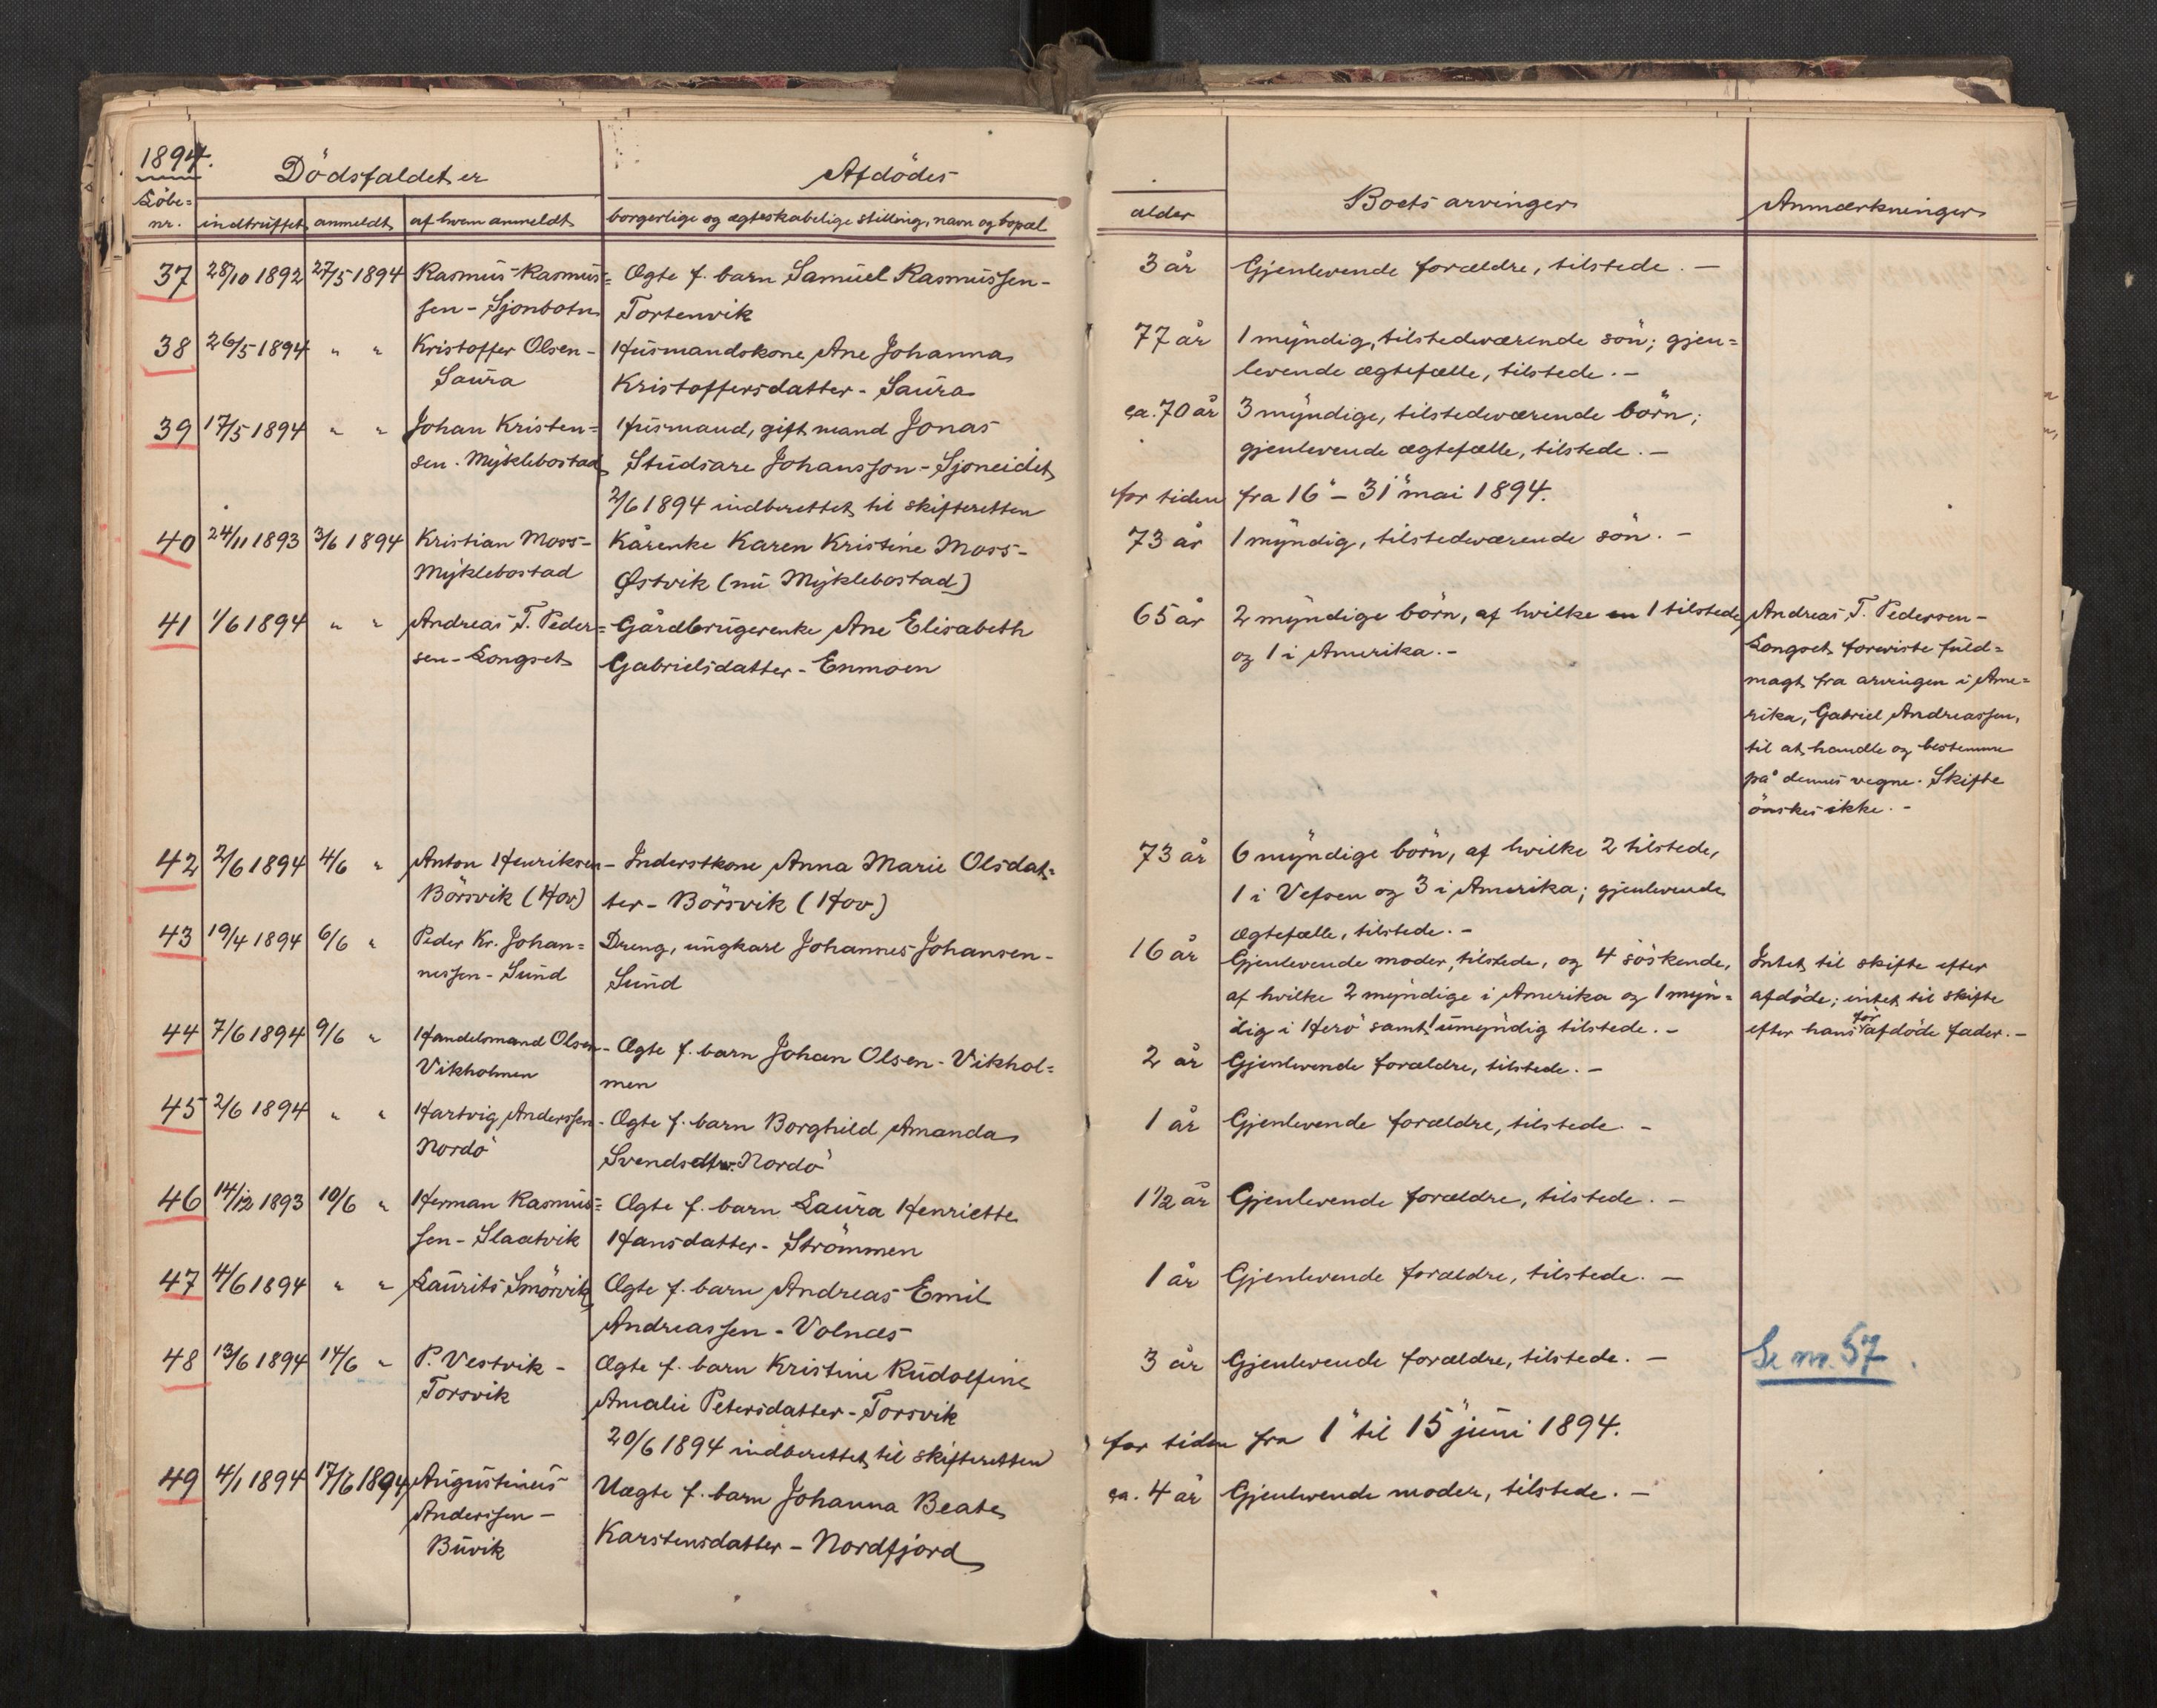 1894.
Dödsfaldet er
Afdödes
Löbe=
nr.
indtruffet
anmeldt
af hvem anmeldt
borgerlige og ægteskabelige stilling, navn og bopæl
alder
Boets arvinger
Anmærkninger
37 28/10 1892 27/5 1894 Rasmus Rasmus= Ægte f. barn Samuel Rasmussen- 3 år Gjenlevende forældre, tilstede. -
sen - Sjonbotn Tortenvik
38 26/5 1894 " " Kristoffer Olsen- Husmandskone Ane Johanna 77 år 1 myndig, tilstedeværende sön; gjen=
Saura Kristoffersdatter - Saura levende ægtefælle, tilstede. -
39 17/5 1894 " " Johan Kristen= Husmand, gift mand Jonas ca. 70 år 3 myndige, tilstedeværende börn;
sen. Myklebostad Studsare Johansson - Sjoneidet gjenlevende ægtefælle, tilstede. -
2/6 1894 indberettet til skifteretten for tiden fra 16 - 31 mai 1894.
40 24/11 1893 3/6 1894 Kristian Moss- Kårenke Karen Kristine Moss- 73 år 1 myndig, tilstedeværende sön. -
Myklebostad Østvik (nu Myklebostad)
41 1/6 1894 " " Andreas T. Peder= Gårdbrugerenke Ane Elisabeth 65 år 2 myndige börn, af hvilke en 1 tilstede Andreas T. Pedersen-
sen - Longset Gabrielsdatter - Enmoen og 1 i Amerika. - Longset foreviste fuld=
magt fra arvingen i Ame=
rika, Gabriel Andreassen,
til at handle og bestemme
på dennes vegne. Skifte
önskes ikke. -
42 2/6 1894 4/6 " Anton Henriksen - Inderstkone Anna Marie Olsdat= 73 år 6 myndige börn, af hvilke 2 tilstede,
Börsvik (Hov) ter - Börsvik (Hov) 1 i Vefsen og 3 i Amerika; gjenlevende
ægtefælle, tilstede. -
43 19/4 1894 6/6 " Peder Kr. Johan= Dreng, ungkarl Johannes Johansen - 16 år Gjenlevende moder, tilstede, og 4 söskende, Intet til skifte efter
nessen - Sund Sund af hvilke 2 myndige i Amerika og 1 myn= afdöde; intet til skifte
dig i Herö samt 1 umyndig tilstede. - efter hans för afdöde fader. -
44 7/6 1894 9/6 " Handelsmand Olsen - Ægte f. barn Johan Olsen - Vikhol= 2 år Gjenlevende forældre, tilstede. -
Vikholmen men
45 2/6 1894 " " Hartvig Anderssen - Ægte f. barn Borghild Amanda 1 år Gjenlevende forældre, tilstede. -
Nordö Svendsdtr. Nordö
46 14/12 1893 10/6 " Herman Rasmus= Ægte f. barn Laura Henriette 1 1/2 år Gjenlevende forældre, tilstede. -
sen - Slaatvik Hansdatter - Strömmen
47 4/6 1894 " " Laurits Smörvik Ægte f. barn Andreas Emil 1 år Gjenlevende forældre, tilstede. -
Andreassen - Volnes
48 13/6 1894 14/6 " P. Vestvik - Ægte f. barn Kristine Rudolfine 3 år Gjenlevende forældre, tilstede. - Se nr. 57.
Torsvik Amalie Petersdatter - Torsvik
20/6 1894 indberettet til skifteretten for tiden fra 1 til 15 juni 1894.
49 4/1 1894 17/6 1894 Augustinus Uægte f. barn Johanna Beate ca. 4 år Gjenlevende moder, tilstede. -
Anderssen - Karstensdatter - Nordfjord
Buvik